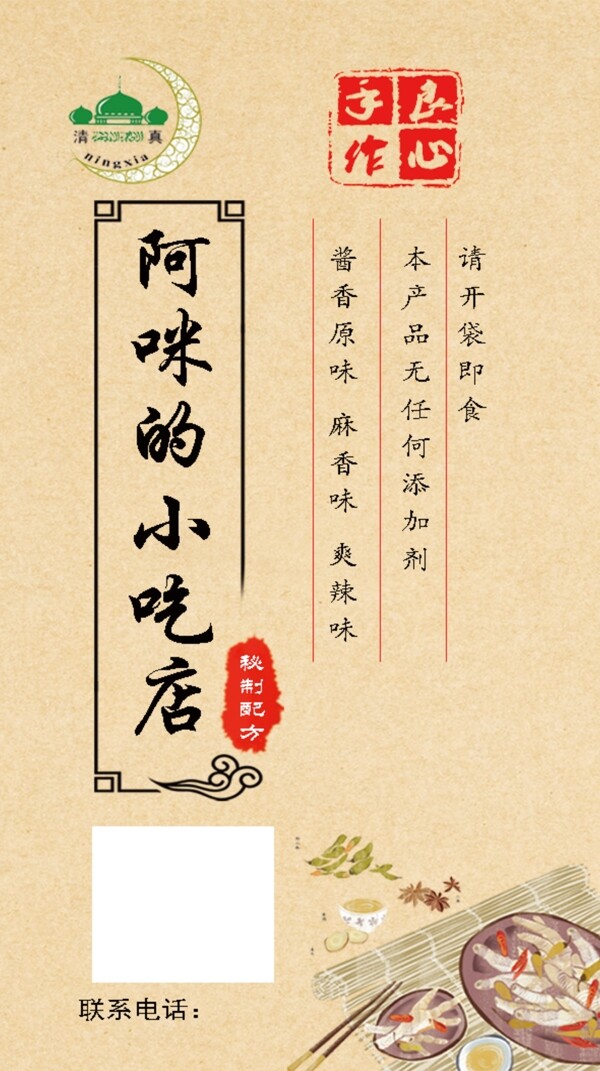 清真
ningxia
良心
手作
请开袋即食
本产品无任何添加剂
酱香原味 麻香味 爽辣味
阿咪的小吃店
秘制配方
联系电话：